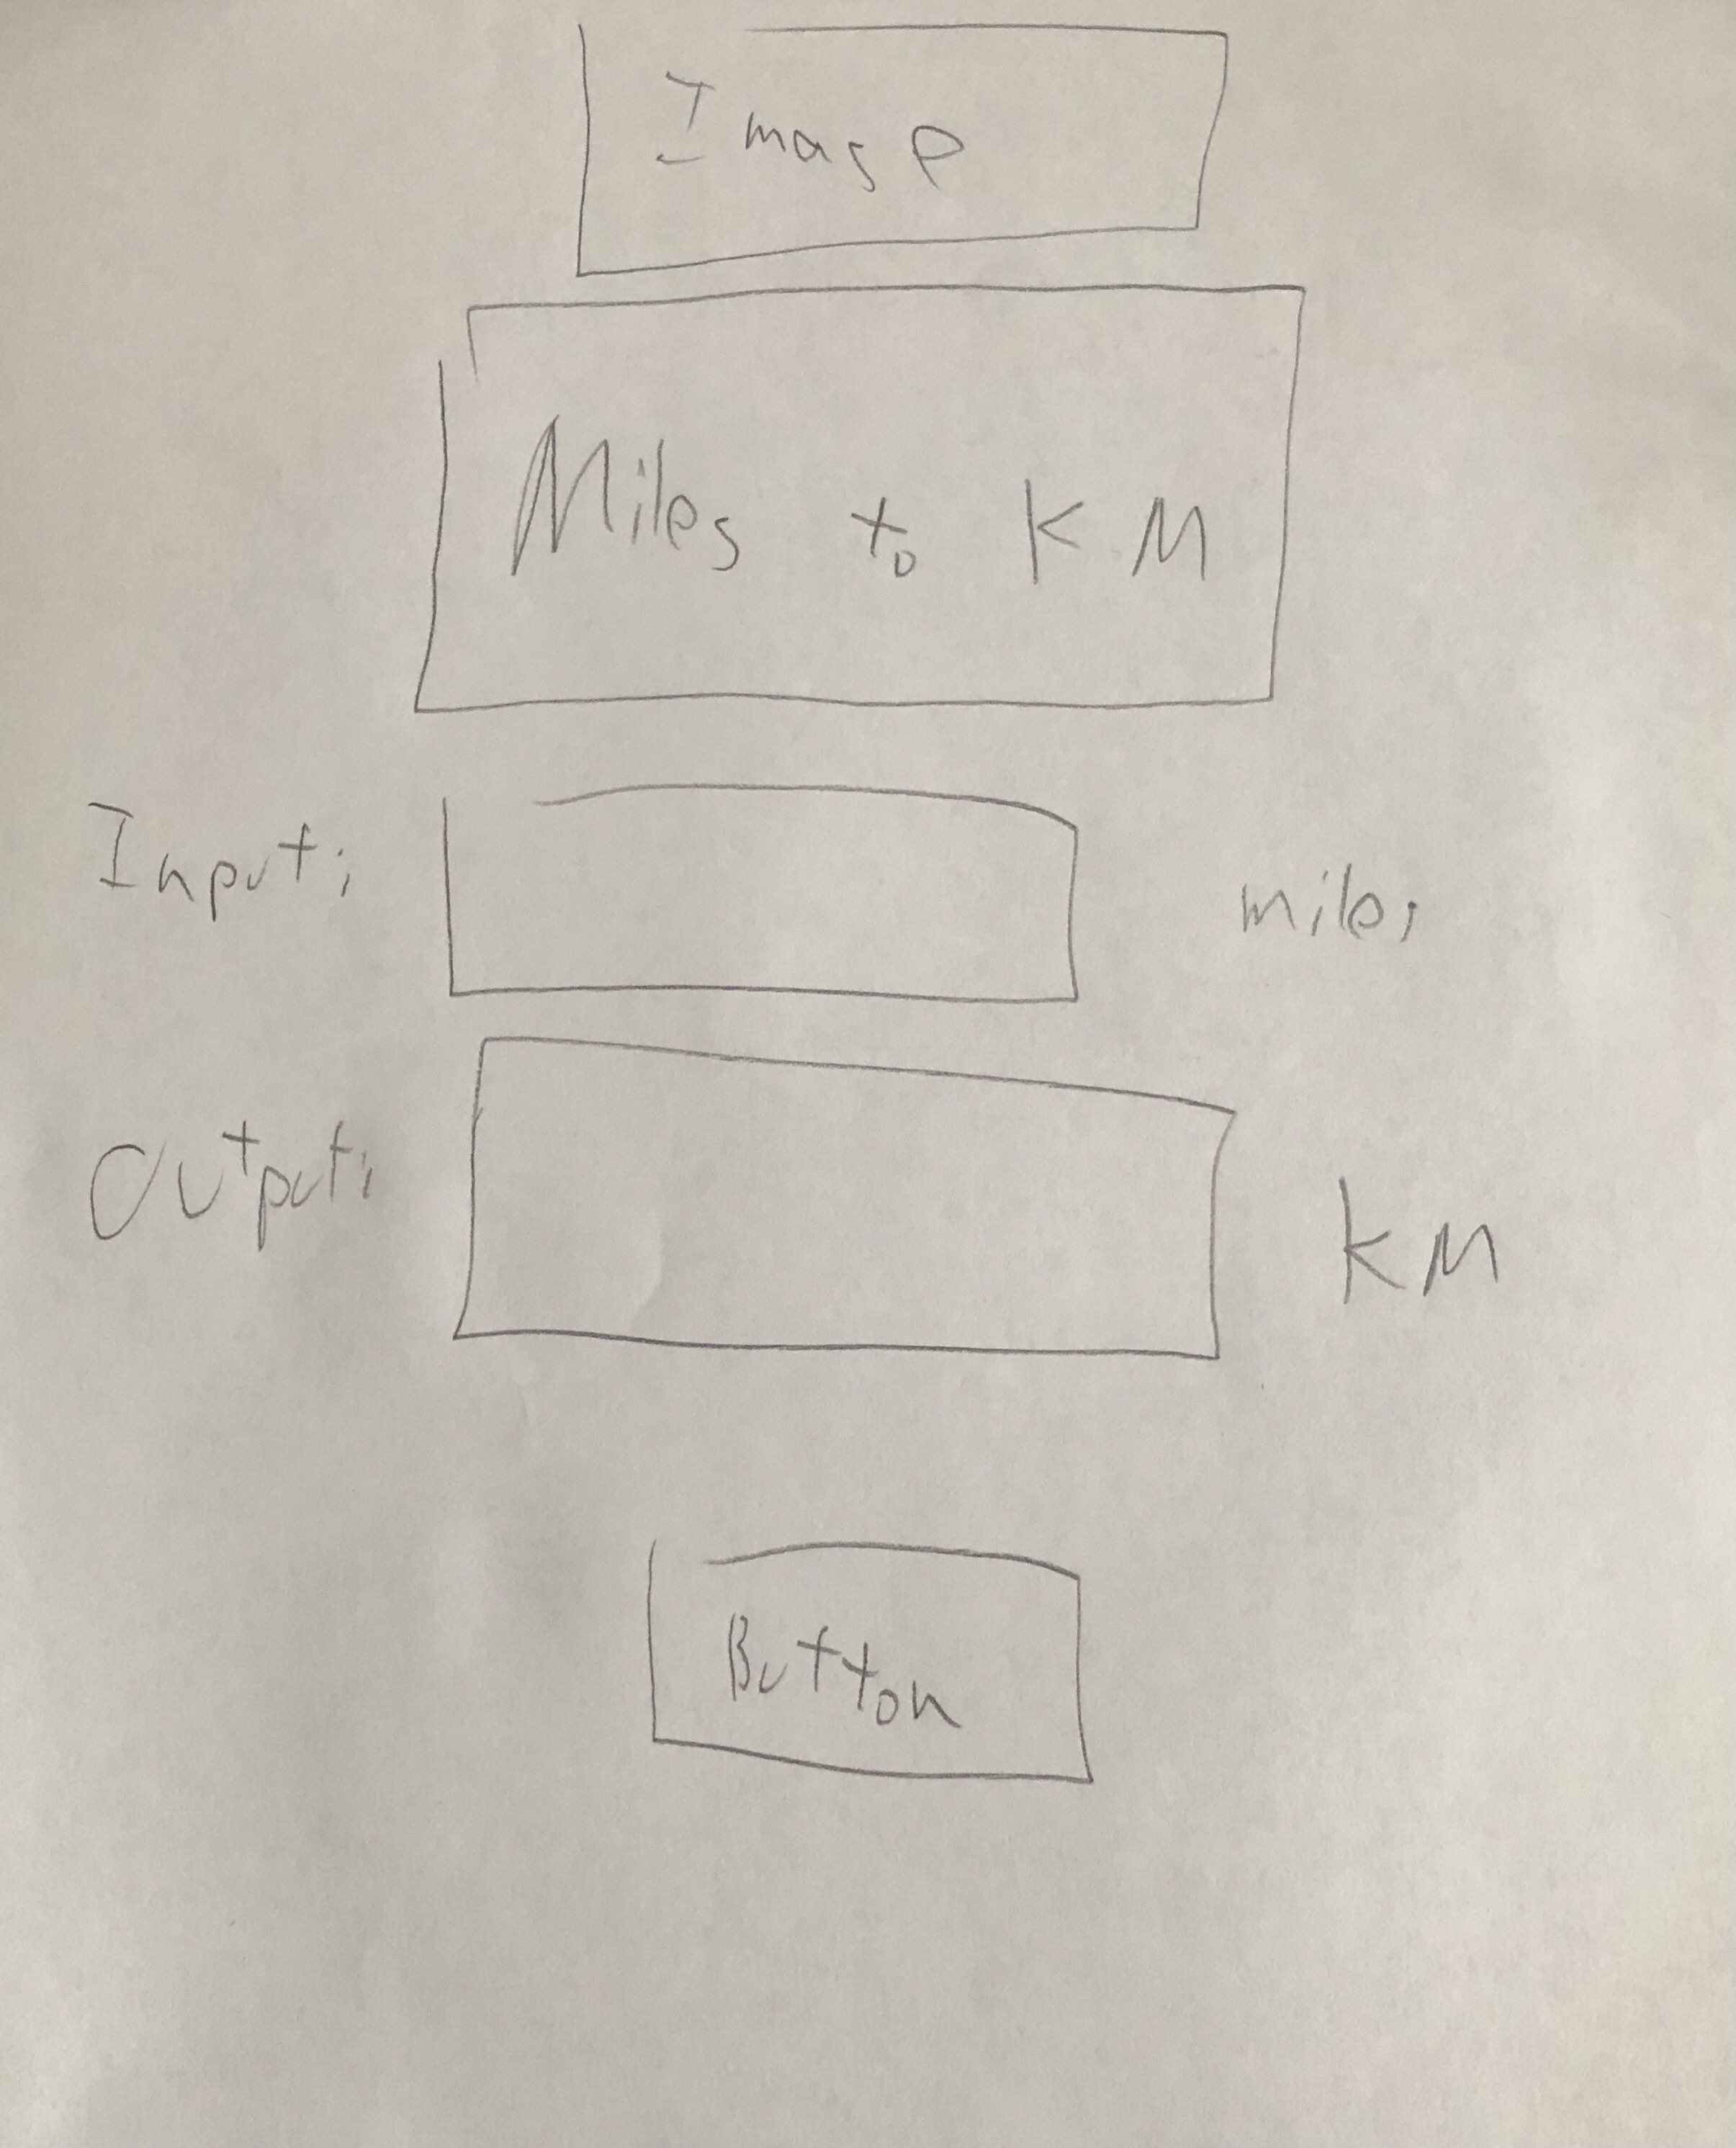 Image
Miles to KM
Input: miles
Output: KM
Button